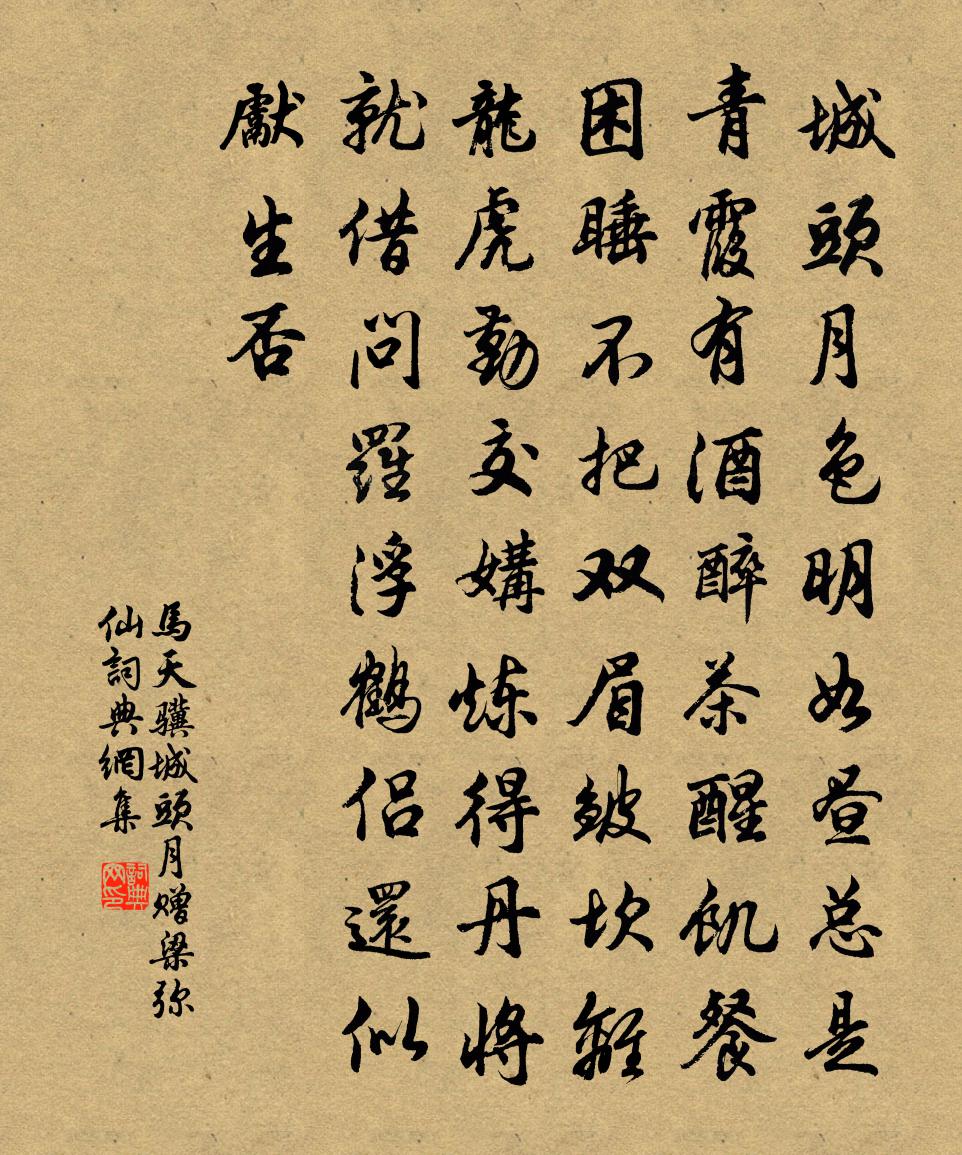 城頭月色明如昼总是
青霞有酒醉茶醒飢餐
困睡不把双眉皴坎離
龍虎勤交媾炼得丹將
就借问羅浮鶴侣還似
獻生否
馬天骥城頭月赠梁弥
仙詞典網集
詞典网印